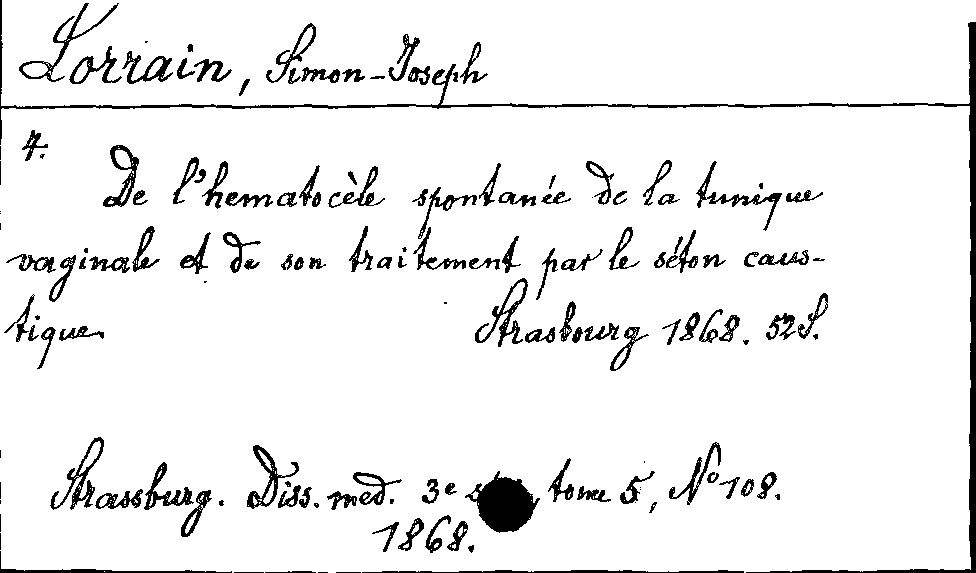 Lorrain, Simon-Joseph
4.
De l'hematocèle spontanée de la tunique
vaginale et de son traitement par le séton caus-
tique.
Strasbourg 1868. 52 S.
Strassburg. Diss. med. 3e , tome 5, No 108.
1868.